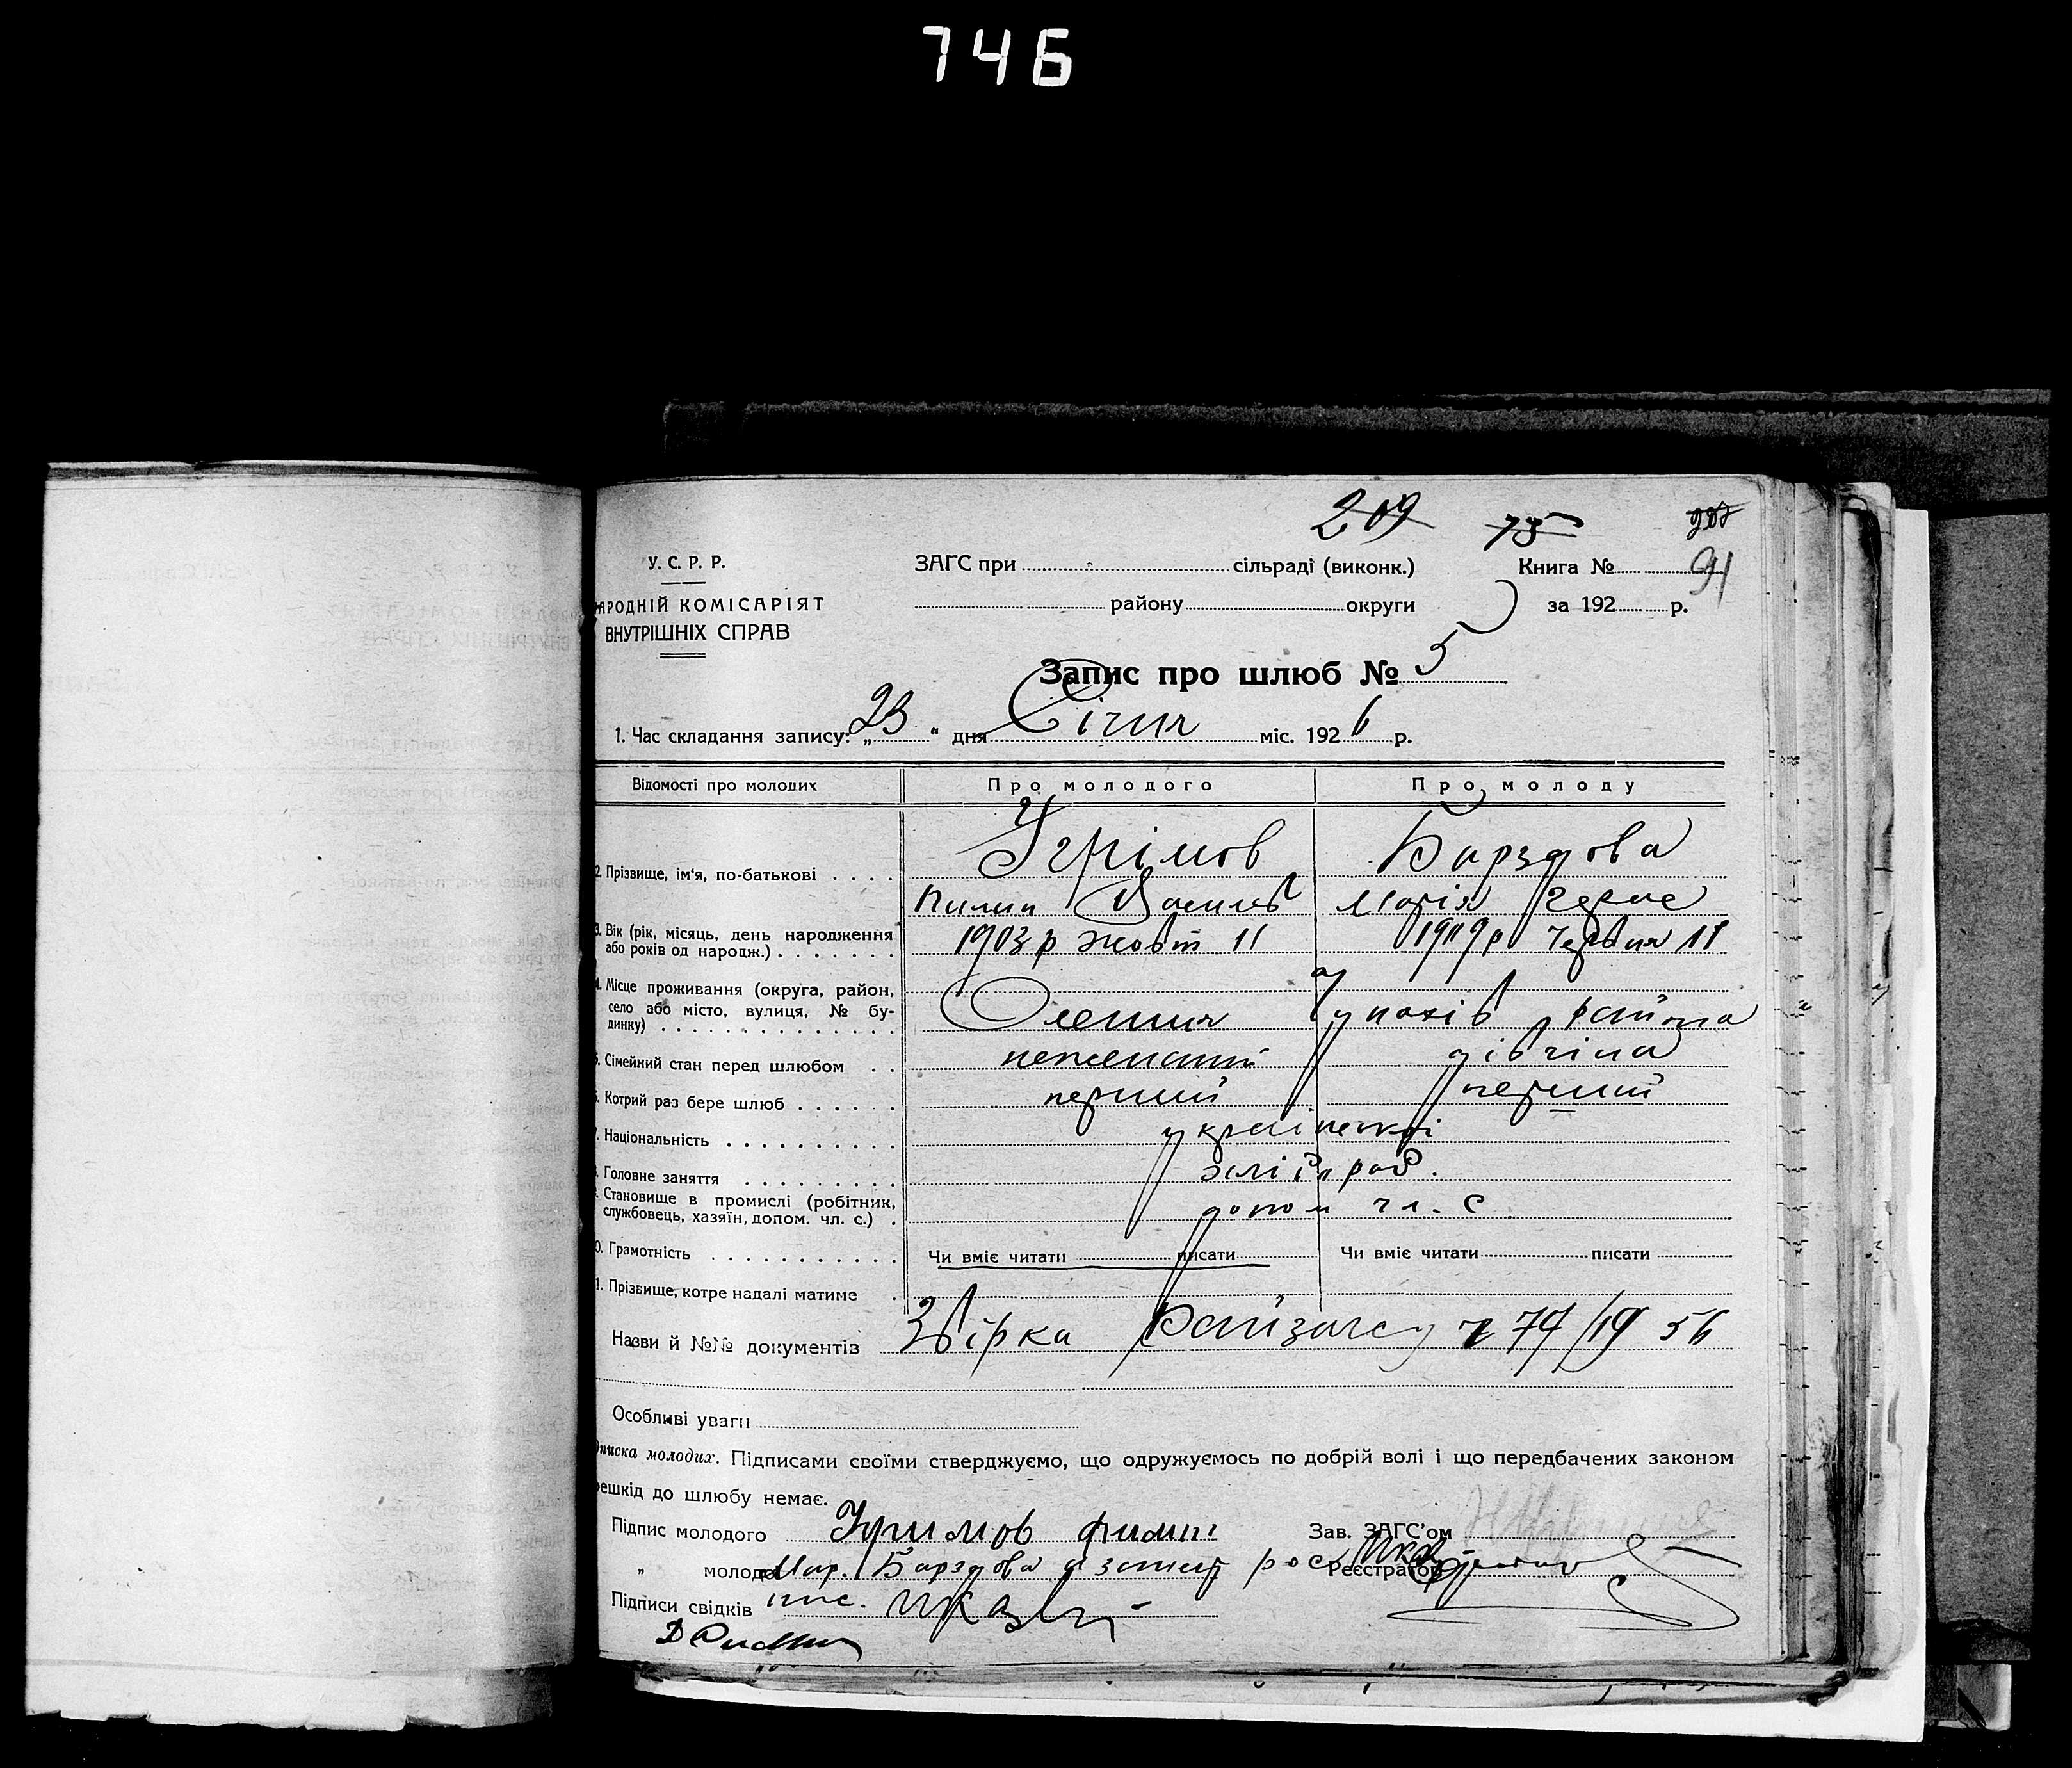 746
209 75
У. С. Р. Р. ЗАГС при сільраді (виконк.) Книга № 91
АРОДНІЙ КОМІСАРІЯТ району округи за 192 р.
ВНУТРІШНІХ СПРАВ
Запис про шлюб № 5
1. Час складання запису: „ 23 “ дня Січня міс. 192 6 р.
Відомості про молодих Про молодого Про молоду
Угрімов Барздова
2 Прізвище, ім'я, по-батькові
Пилип Василів Марія Герас
3. Вік (рік, місяць, день народження 1903 р жовт 11 Червня 11
або років од народж.)
4. Місце проживання (округа, район,
село або місто, вулиця, № бу- Олешня
динку)
5. Сімейний стан перед шлюбом нежонатий дівчина
6. Котрий раз бере шлюб перший перший
7. Національність української
8. Головне заняття хлібороб.
9. Становище в промислі (робітник, допом чл. с
службовець, хазяїн, допом. чл. с.)
0. Грамотність Чи вміє читати писати Чи вміє читати писати
1. Прізвище, котре надалі матиме
Назви й №№ документів Звірка Райзагсу 74/19 56
Особливі уваги
дписка молодих. Підписами своїми стверджуємо, що одружуємось по добрій волі і що передбачених законом
ешкід до шлюбу немає.
Підпис молодого Угримов Зав. ЗАГС'ом
„ молодої Мар. Барздова а за неї рос Реєстратор
Підписи свідків